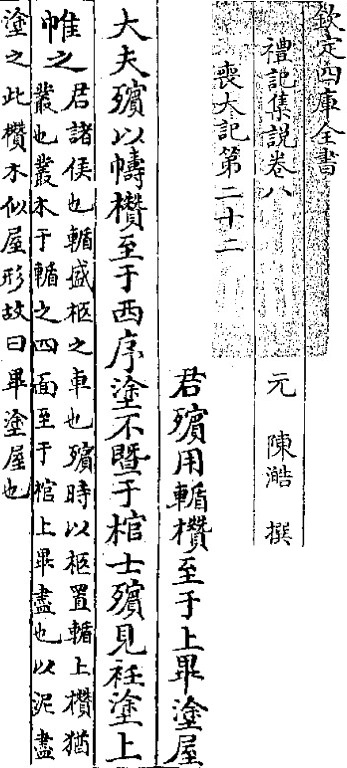 欽定四庫全書
禮記集說卷八
元 陳澔 撰
喪大記第二十二
君殯用輴欑至于上畢塗屋
大夫殯以幬欑至于西序塗不暨于棺士殯見衽塗上
帷之
君諸侯也輴盛柩之車也殯時以柩置輴上欑猶
叢也叢木于輴之四面至于棺上畢盡也以泥盡
塗之此欑木似屋形故曰畢塗屋也